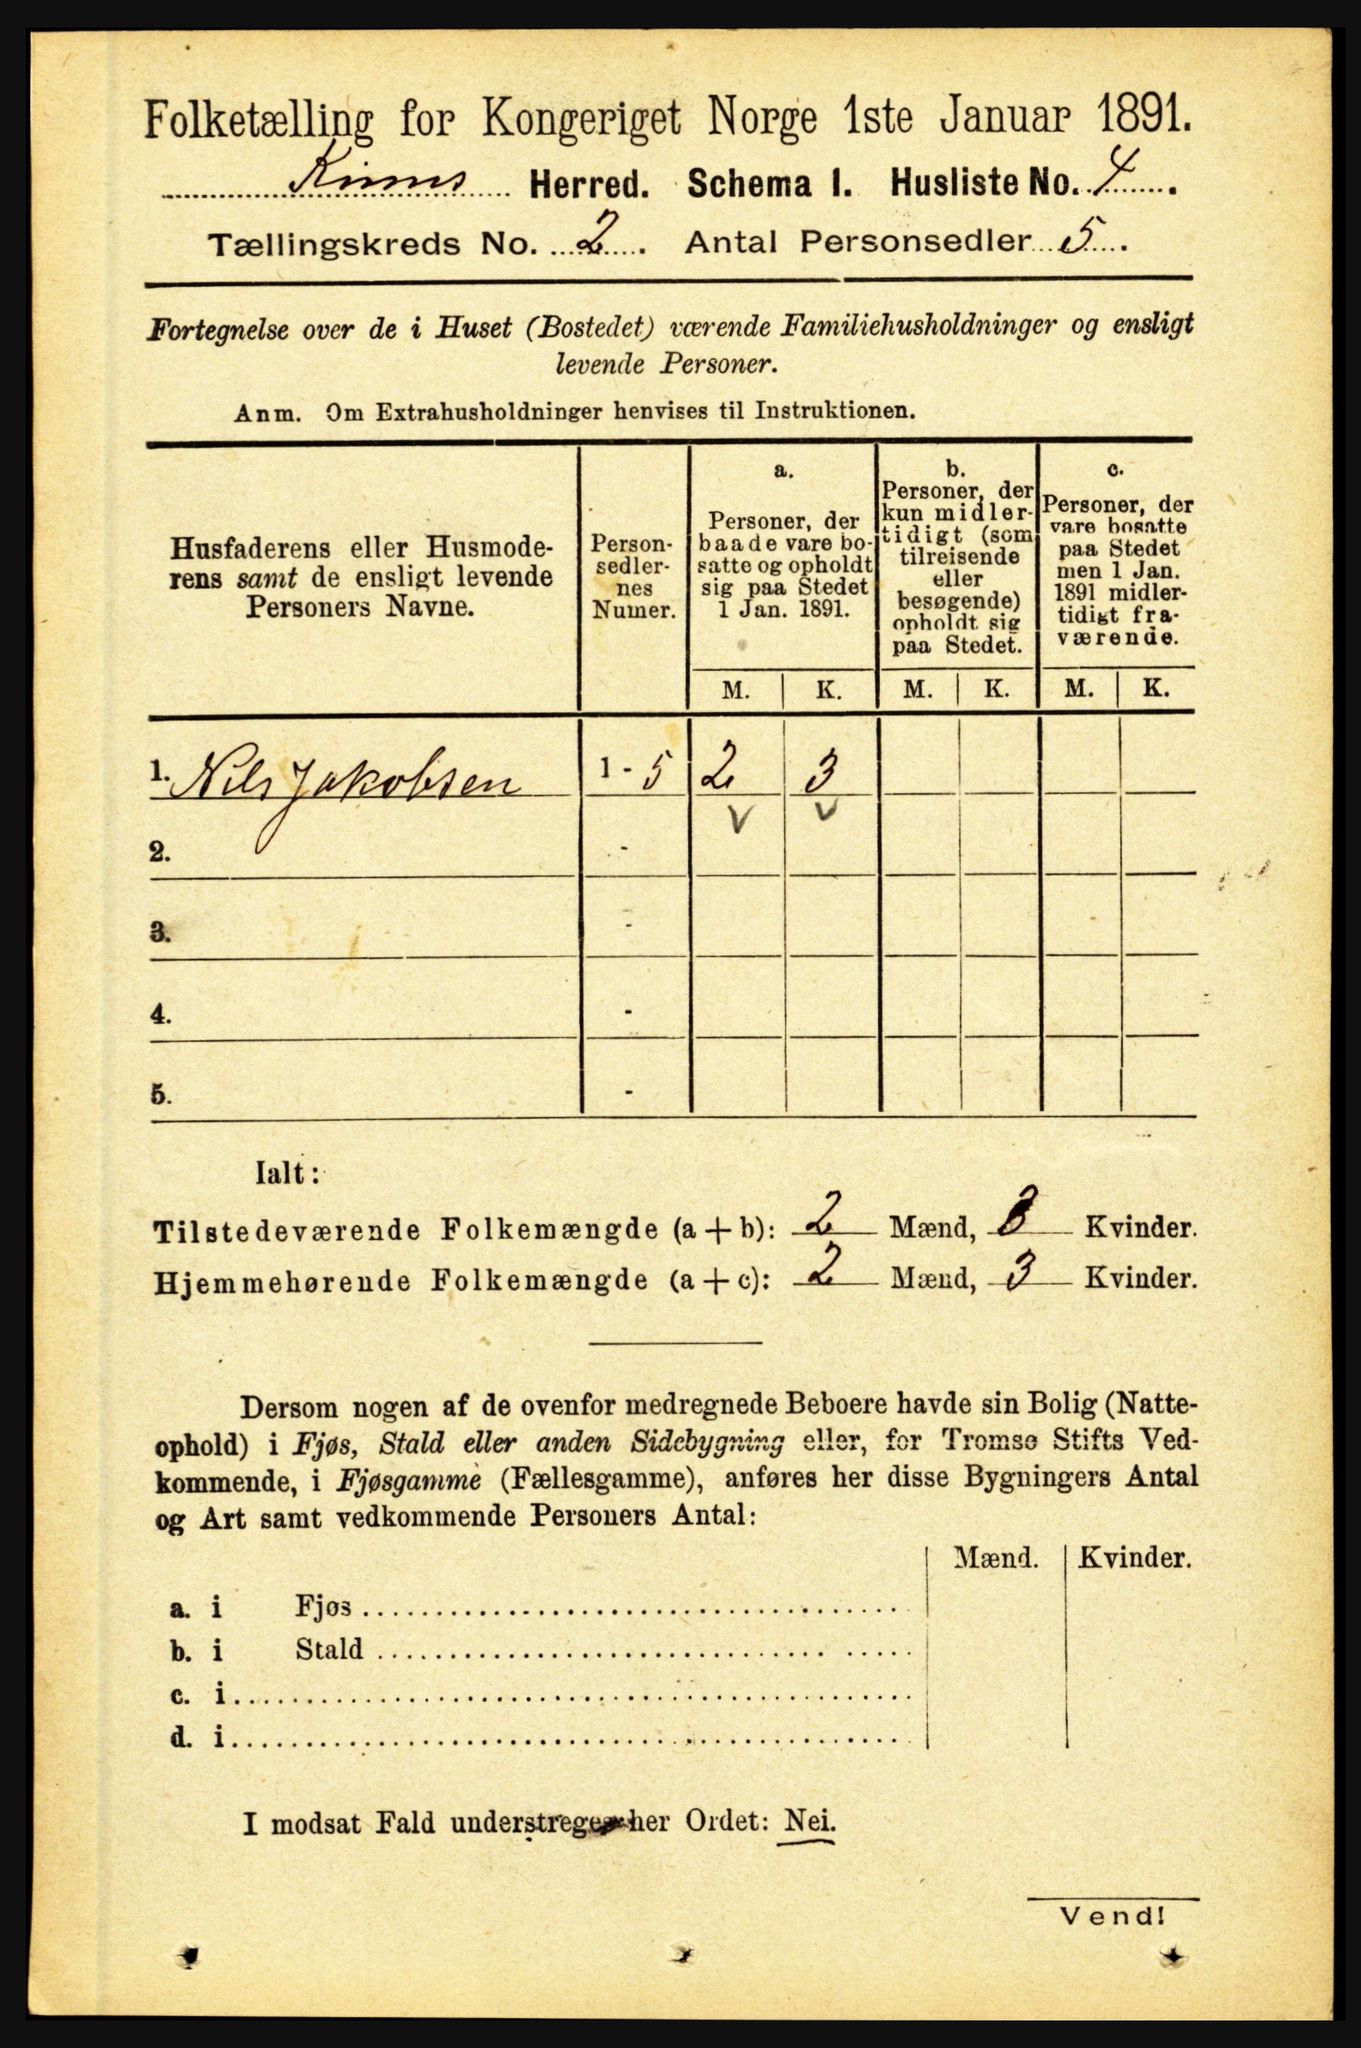 Folketælling for Kongeriget Norge 1ste Januar 1891.
Kinns Herred. Schema 1. Husliste No. 4.
Tællingskreds No. 2. Antal Personsedler 5.
Fortegnelse over de i Huset (Bostedet) værende Familiehusholdninger og ensligt
levende Personer.
Anm. Om Extrahusholdninger henvises til Instruktionen.
Husfaderens eller Husmode-
rens samt de ensligt levende
Personers Navne.
Person-
sedler-
nes
Numer.
a.
Personer, der
baade vare bo-
satte og opholdt
sig paa Stedet
1 Jan. 1891.
b.
Personer, der
kun midler-
tidigt (som
tilreisende
eller
besøgende)
opholdt sig
paa Stedet.
c.
Personer, der
vare bosatte
paa Stedet
men 1 Jan.
1891 midler-
tidigt fra-
værende.
M. K. M. K. M. K.
1. Nils Jakobsen 1 - 5 2 3
v v
2. -
3. -
4. -
5. -
Ialt:
Tilstedeværende Folkemængde (a + b): 2 Mænd, 3 Kvinder.
Hjemmehørende Folkemængde (a + c): 2 Mænd, 3 Kvinder.
Dersom nogen af de ovenfor medregnede Beboere havde sin Bolig (Natte-
ophold) i Fjøs, Stald eller anden Sidebygning eller, for Tromsø Stifts Ved-
kommende, i Fjøsgamme (Fællesgamme), anføres her disse Bygningers Antal
og Art samt vedkommende Personers Antal:
Mænd. Kvinder.
a. i Fjøs
b. i Stald
c. i
d. i
I modsat Fald understreges her Ordet: Nei.
Vend!